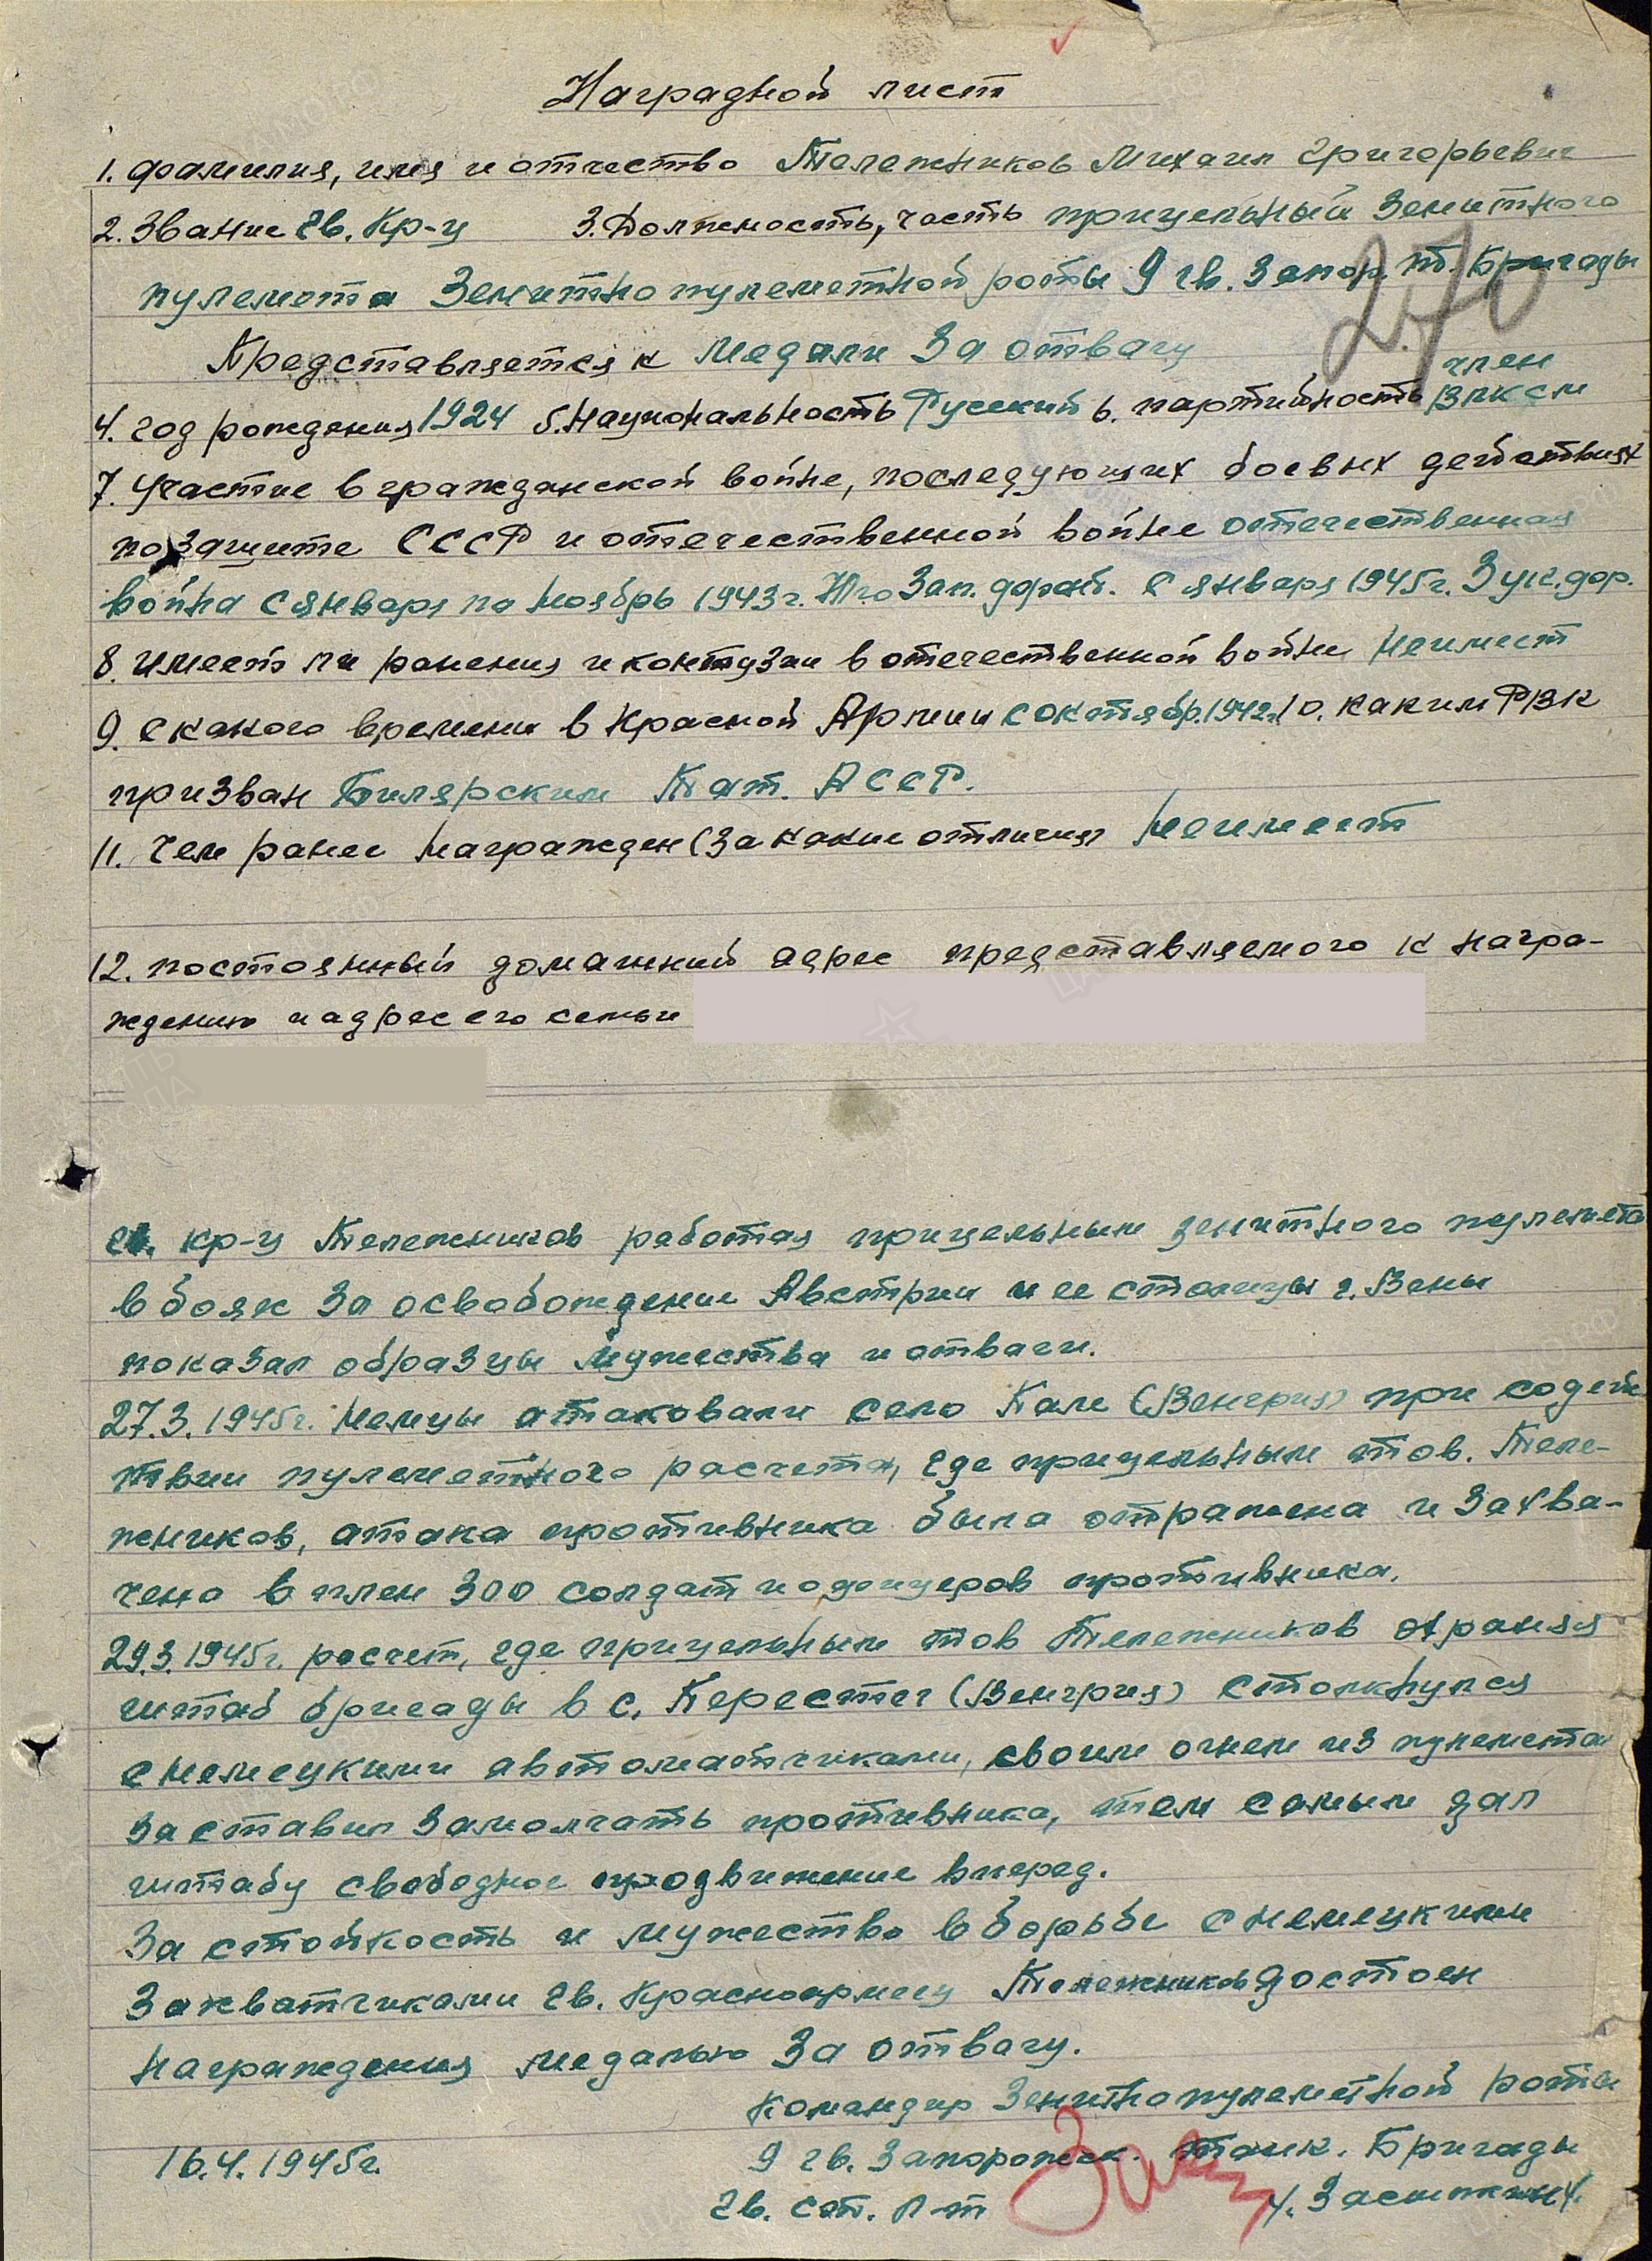 Наградной лист
1. Фамилия, имя и отчество Тележников Михаил Григорьевич
2. Звание Гв. Кр-ц 3. Должность, часть прицельный Зенитного
пулемета Зенитно пулеметной роты 9 гв. Запор. тб. Бригады
270
Представляется к Медали За отвагу
член
4. год рождения 1924 5. Национальность Русский 6. партийность ВЛКСМ
7. Участие в гражданской войне, последующих боевых действиях
по защите СССР и отечественной войне отечественная
война с января по Ноябрь 1943г. Юго Зап. фронт. С января 1945г. 3 ук. фр.
8. имеет ли ранения и контузии в отечественной войне Не имеет
9. с какого времени в Красной Армии с октябр. 1942г. 10. каким РВК
призван Билярским Тат. АССР.
11. Чем ранее награжден (за какие отличия) Не имеет
12. постоянный домашний адрес представляемого к награ-
ждению и адрес его семьи
Гв. кр-ц Тележников работая прицельным зенитного пулемета
в боях за освобождение Австрии и ее столицы г. Вены
показал образцы Мужества и отваги.
27.3.1945г. Немцы атаковали село Кам (Венгрия) при содей-
ствии пулеметного расчета, где прицельным тов. Теле-
жников, атака противника была отражена и захва-
чено в плен 300 солдат и офицеров противника.
29.3.1945г. расчет, где прицельным тов Тележников охраняя
штаб бригады в с. Перестег (Венгрия) столкнулся
с немецкими автоматчиками, своим огнем из пулемета
заставил замолчать противника, тем самым дал
штабу свободное продвижение вперед.
За стойкость и мужество в борьбе с немецкими
захватчиками Гв. Красноармеец Тележников достоен
Награждения медалью За отвагу.
Командир Зенитно пулеметной роты
16.4.1945г. 9 гв. Запорожск. танк. Бригады
Гв. ст. л-т